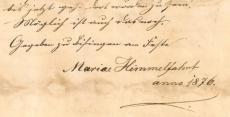 bis jetzt
Möglich ist auch das noch.
Gegeben zu Bisingen am Feste
Mariae Himmelfahrt
anno 1876.